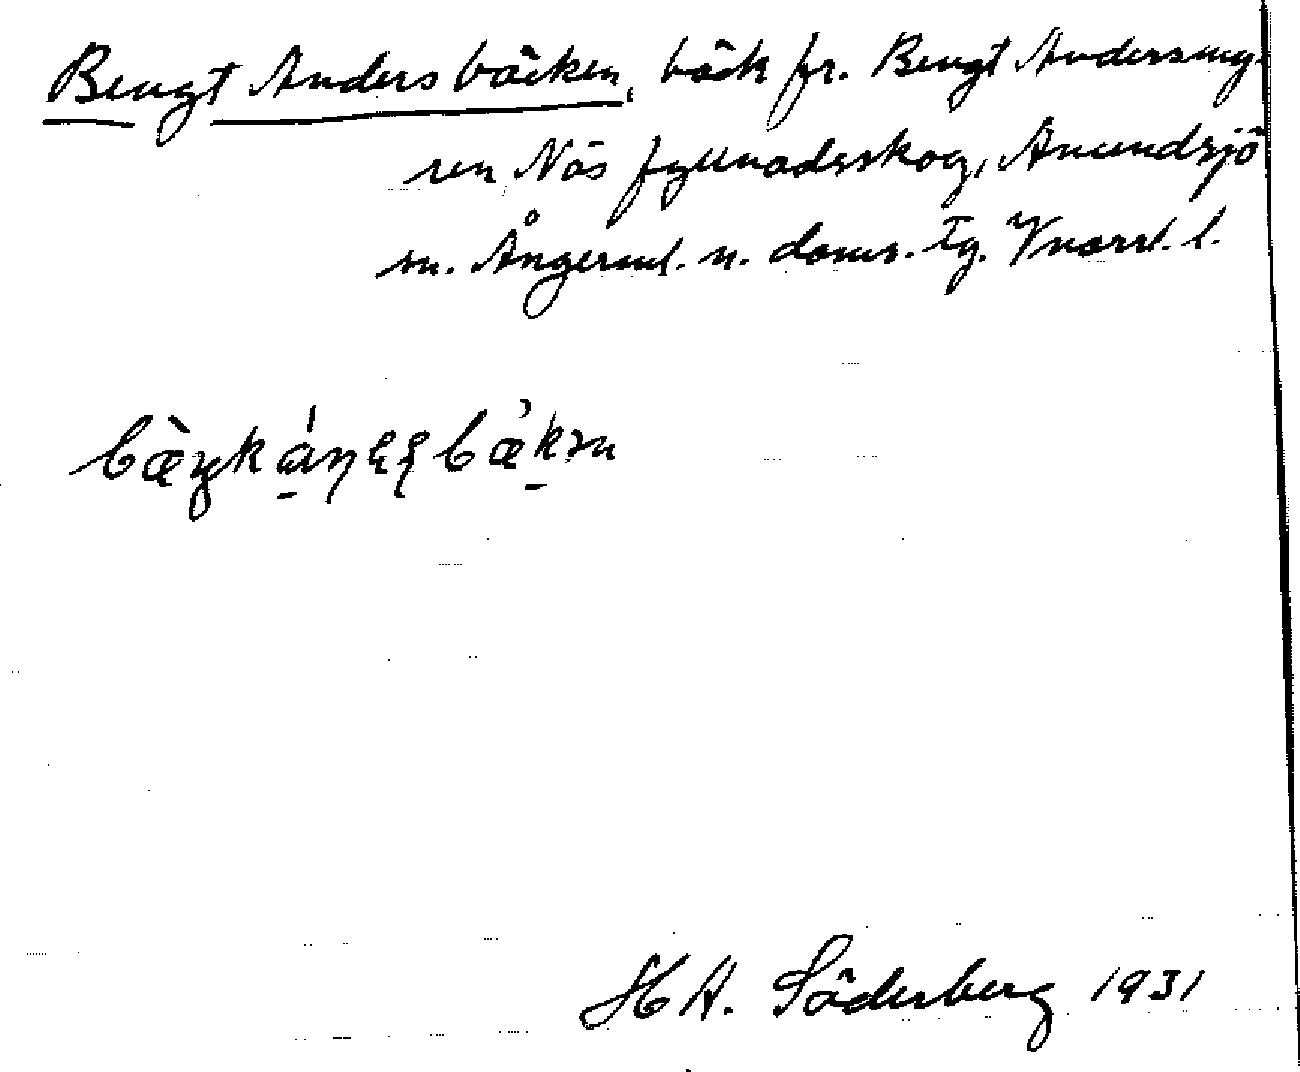 Bengt Anders bäcken, bäck fr. Bengt Andersmy-
ren Näs fyllnadsskog, Anundsjö
sn. Ångerml. n. doms. tg. Vnorrl. l.
H A. Söderberg 1931